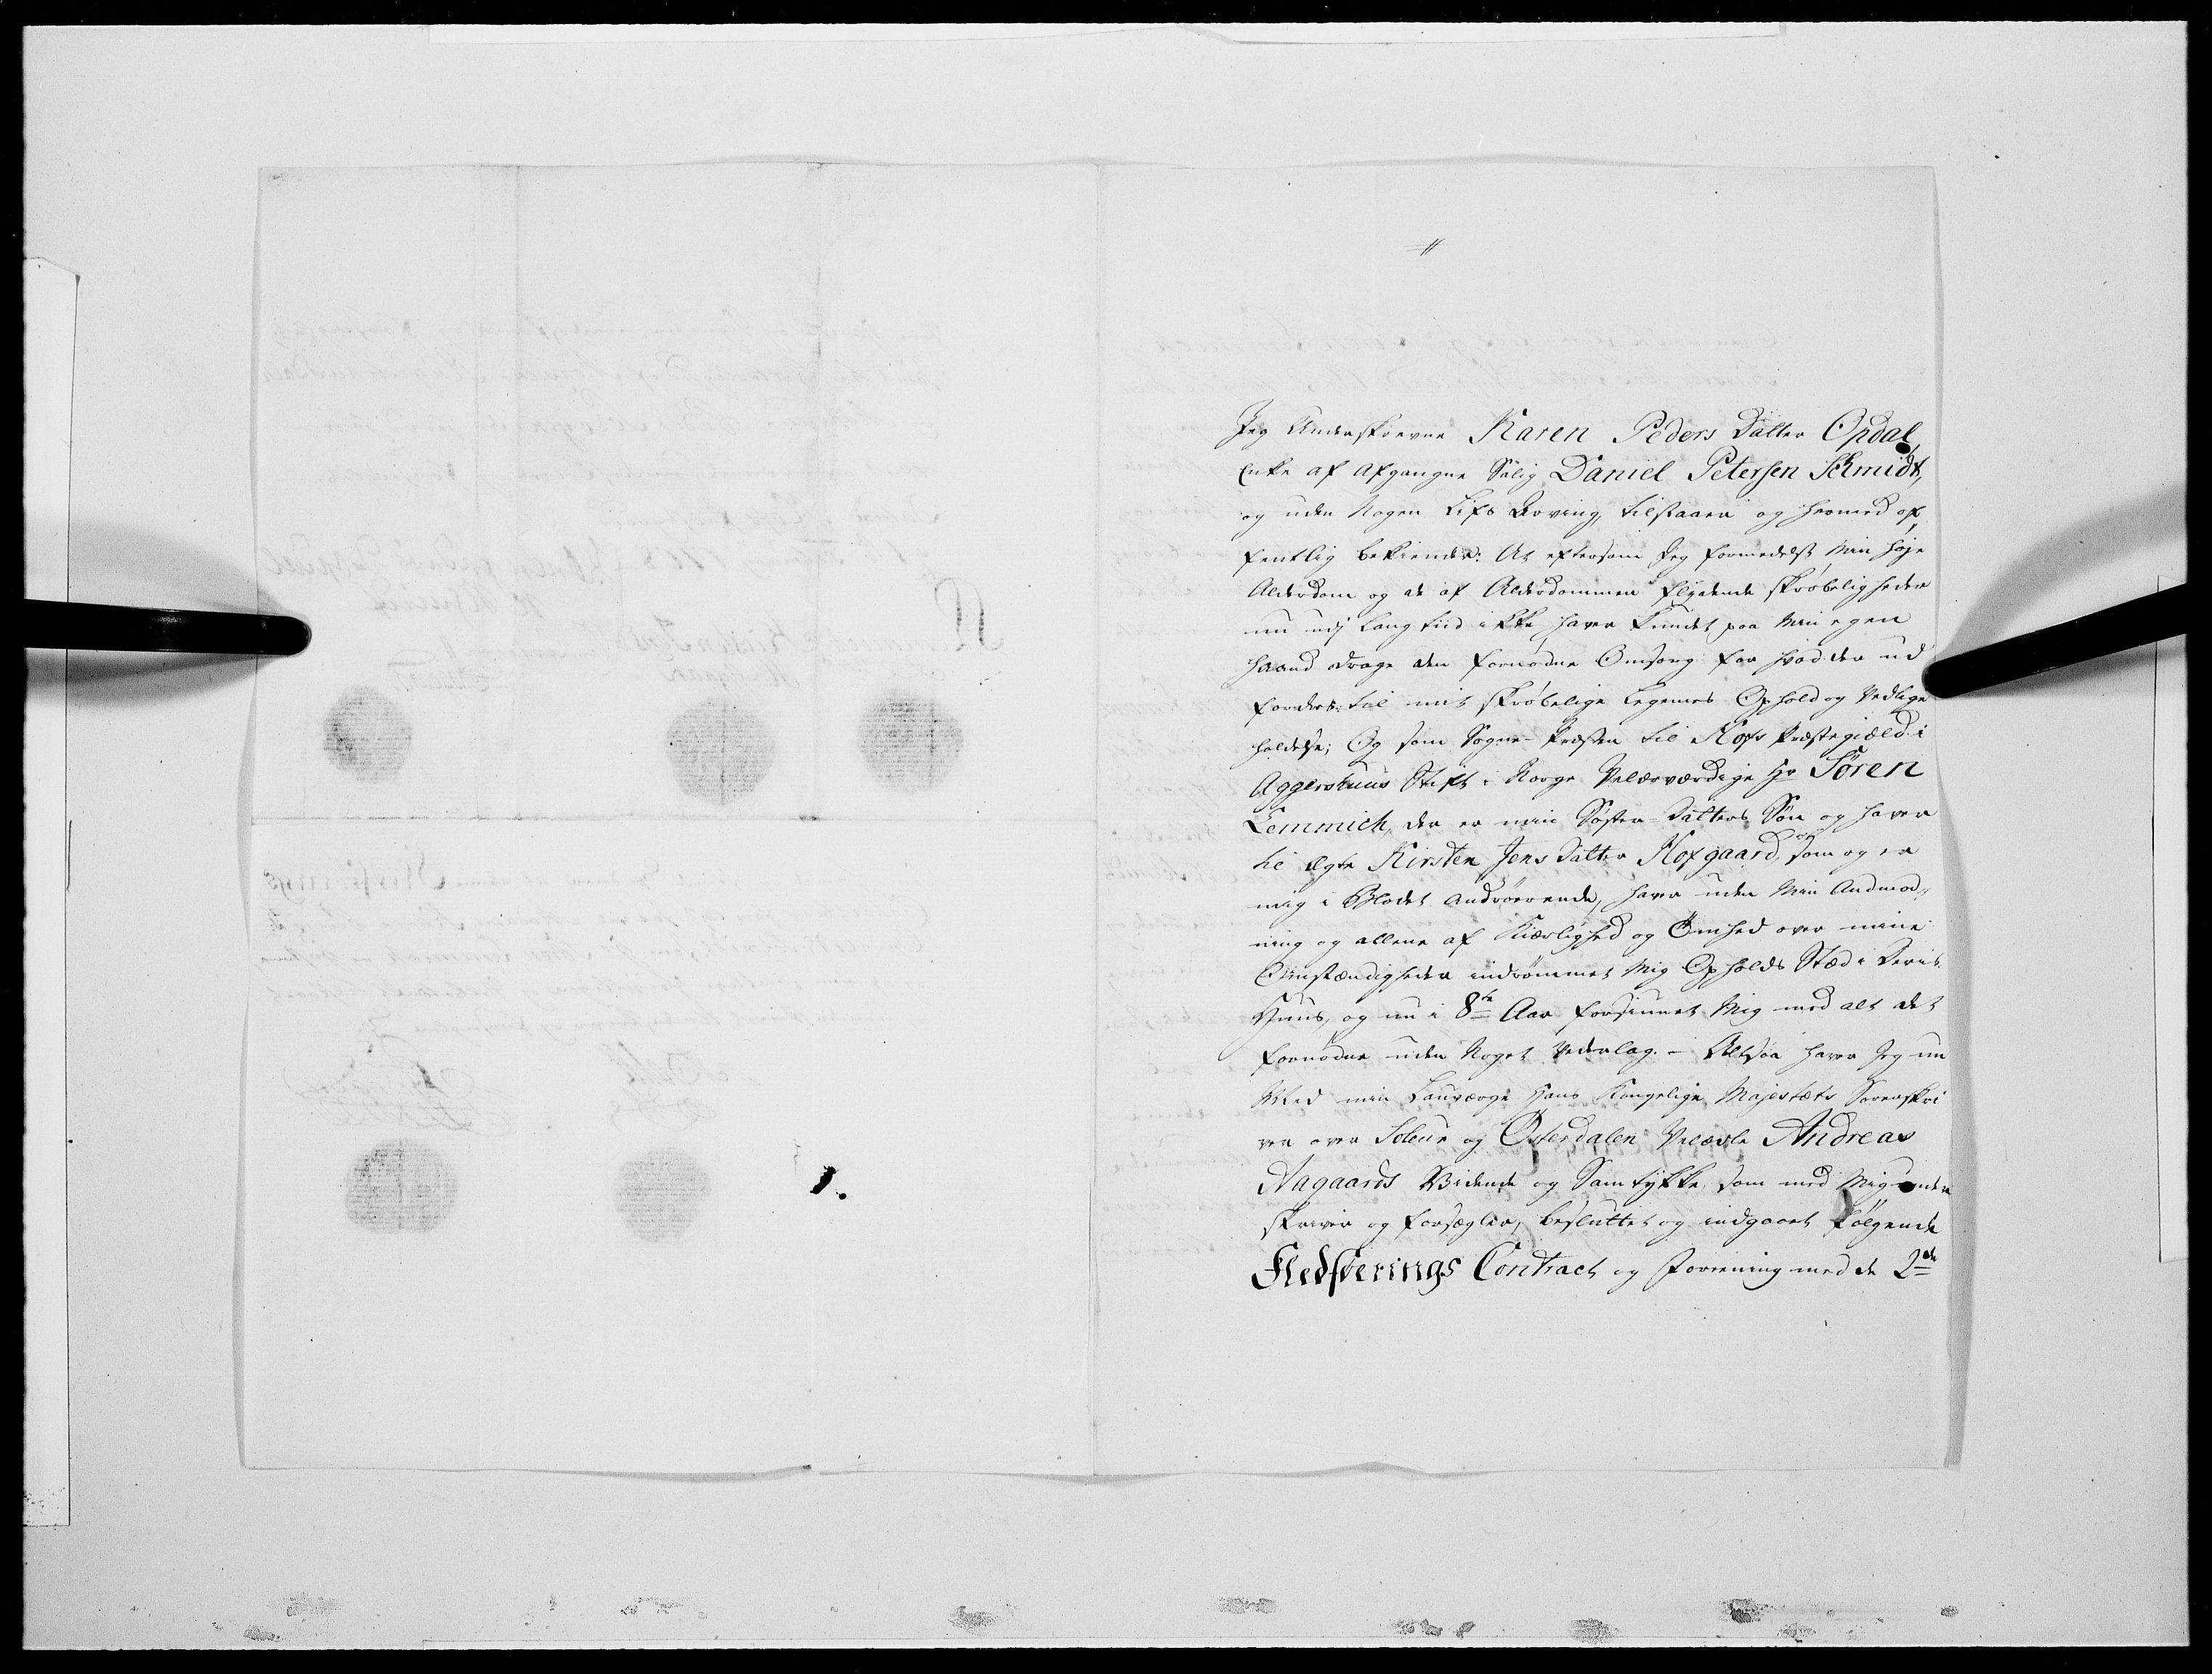 Jeg Underskrevne Karen Peders Datter Opdal,
Enke af Afgangne Salig Daniel Petersen Schmidt,
og uden Nogen Lifs Arving, tilstaaer og hermed of,,
fentlig bekiender: At eftersom Jeg formedelst Min høje
Alderdom og de af Alderdommen flydende skrøbeligheder
nu udj lang tiid ikke haver kundet paa Min egen
haand drage den fornødne Omsorg for hvad der ud
fordres til mit skrøbelige Legemes Ophold og Vedlige
holdelse; Og som Sogne-Præsten til Hofs Præstegiæld i
Aggershuus Stift i Norge Velærværdige Hr Søren
Lemmich, der er min Søster-Datters Søn og haver
til Egte Kirsten Jens Datter Hofgaard, som og er
mig i Blodet andrørende, haver uden Min Anmod,,
ning og allene af Kiærlighed og Ømhed over mine
Omstændigheder indrømmet Mig Opholds Stæd i Deris
Huus, og nu i 8te Aar forsiunet Mig med alt det
fornødne uden Noget Vederlag. - Altsaa haver Jeg nu
Med min Lauværge Hans Kongelige Majestæts Sorenskri
ver over Soleur og Østerdalen Velædle Andreas
Aagaards Vidende og Samtykke, som med Mig under
skriver og forsegler, besluttet og indgaaet følgende
Fledførings Contract og Foreening med de 2de